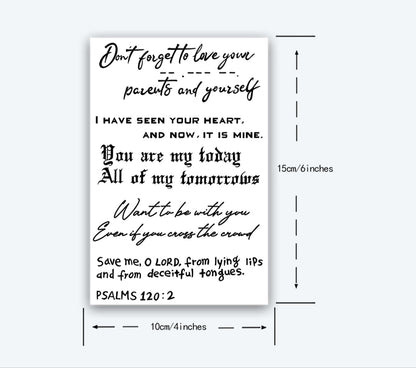 Don't forget to love your
parents and yourself
I HAVE SEEN YOUR HEART,
AND NOW, IT IS MINE.
You are my today
All of my tomorrows
Want to be with you
Even if you cross the crowd
Save me, O LORD, from lying lips
and from deceitful tongues.
PSALMS 120:2
15cm/6inches
10cm/4inches